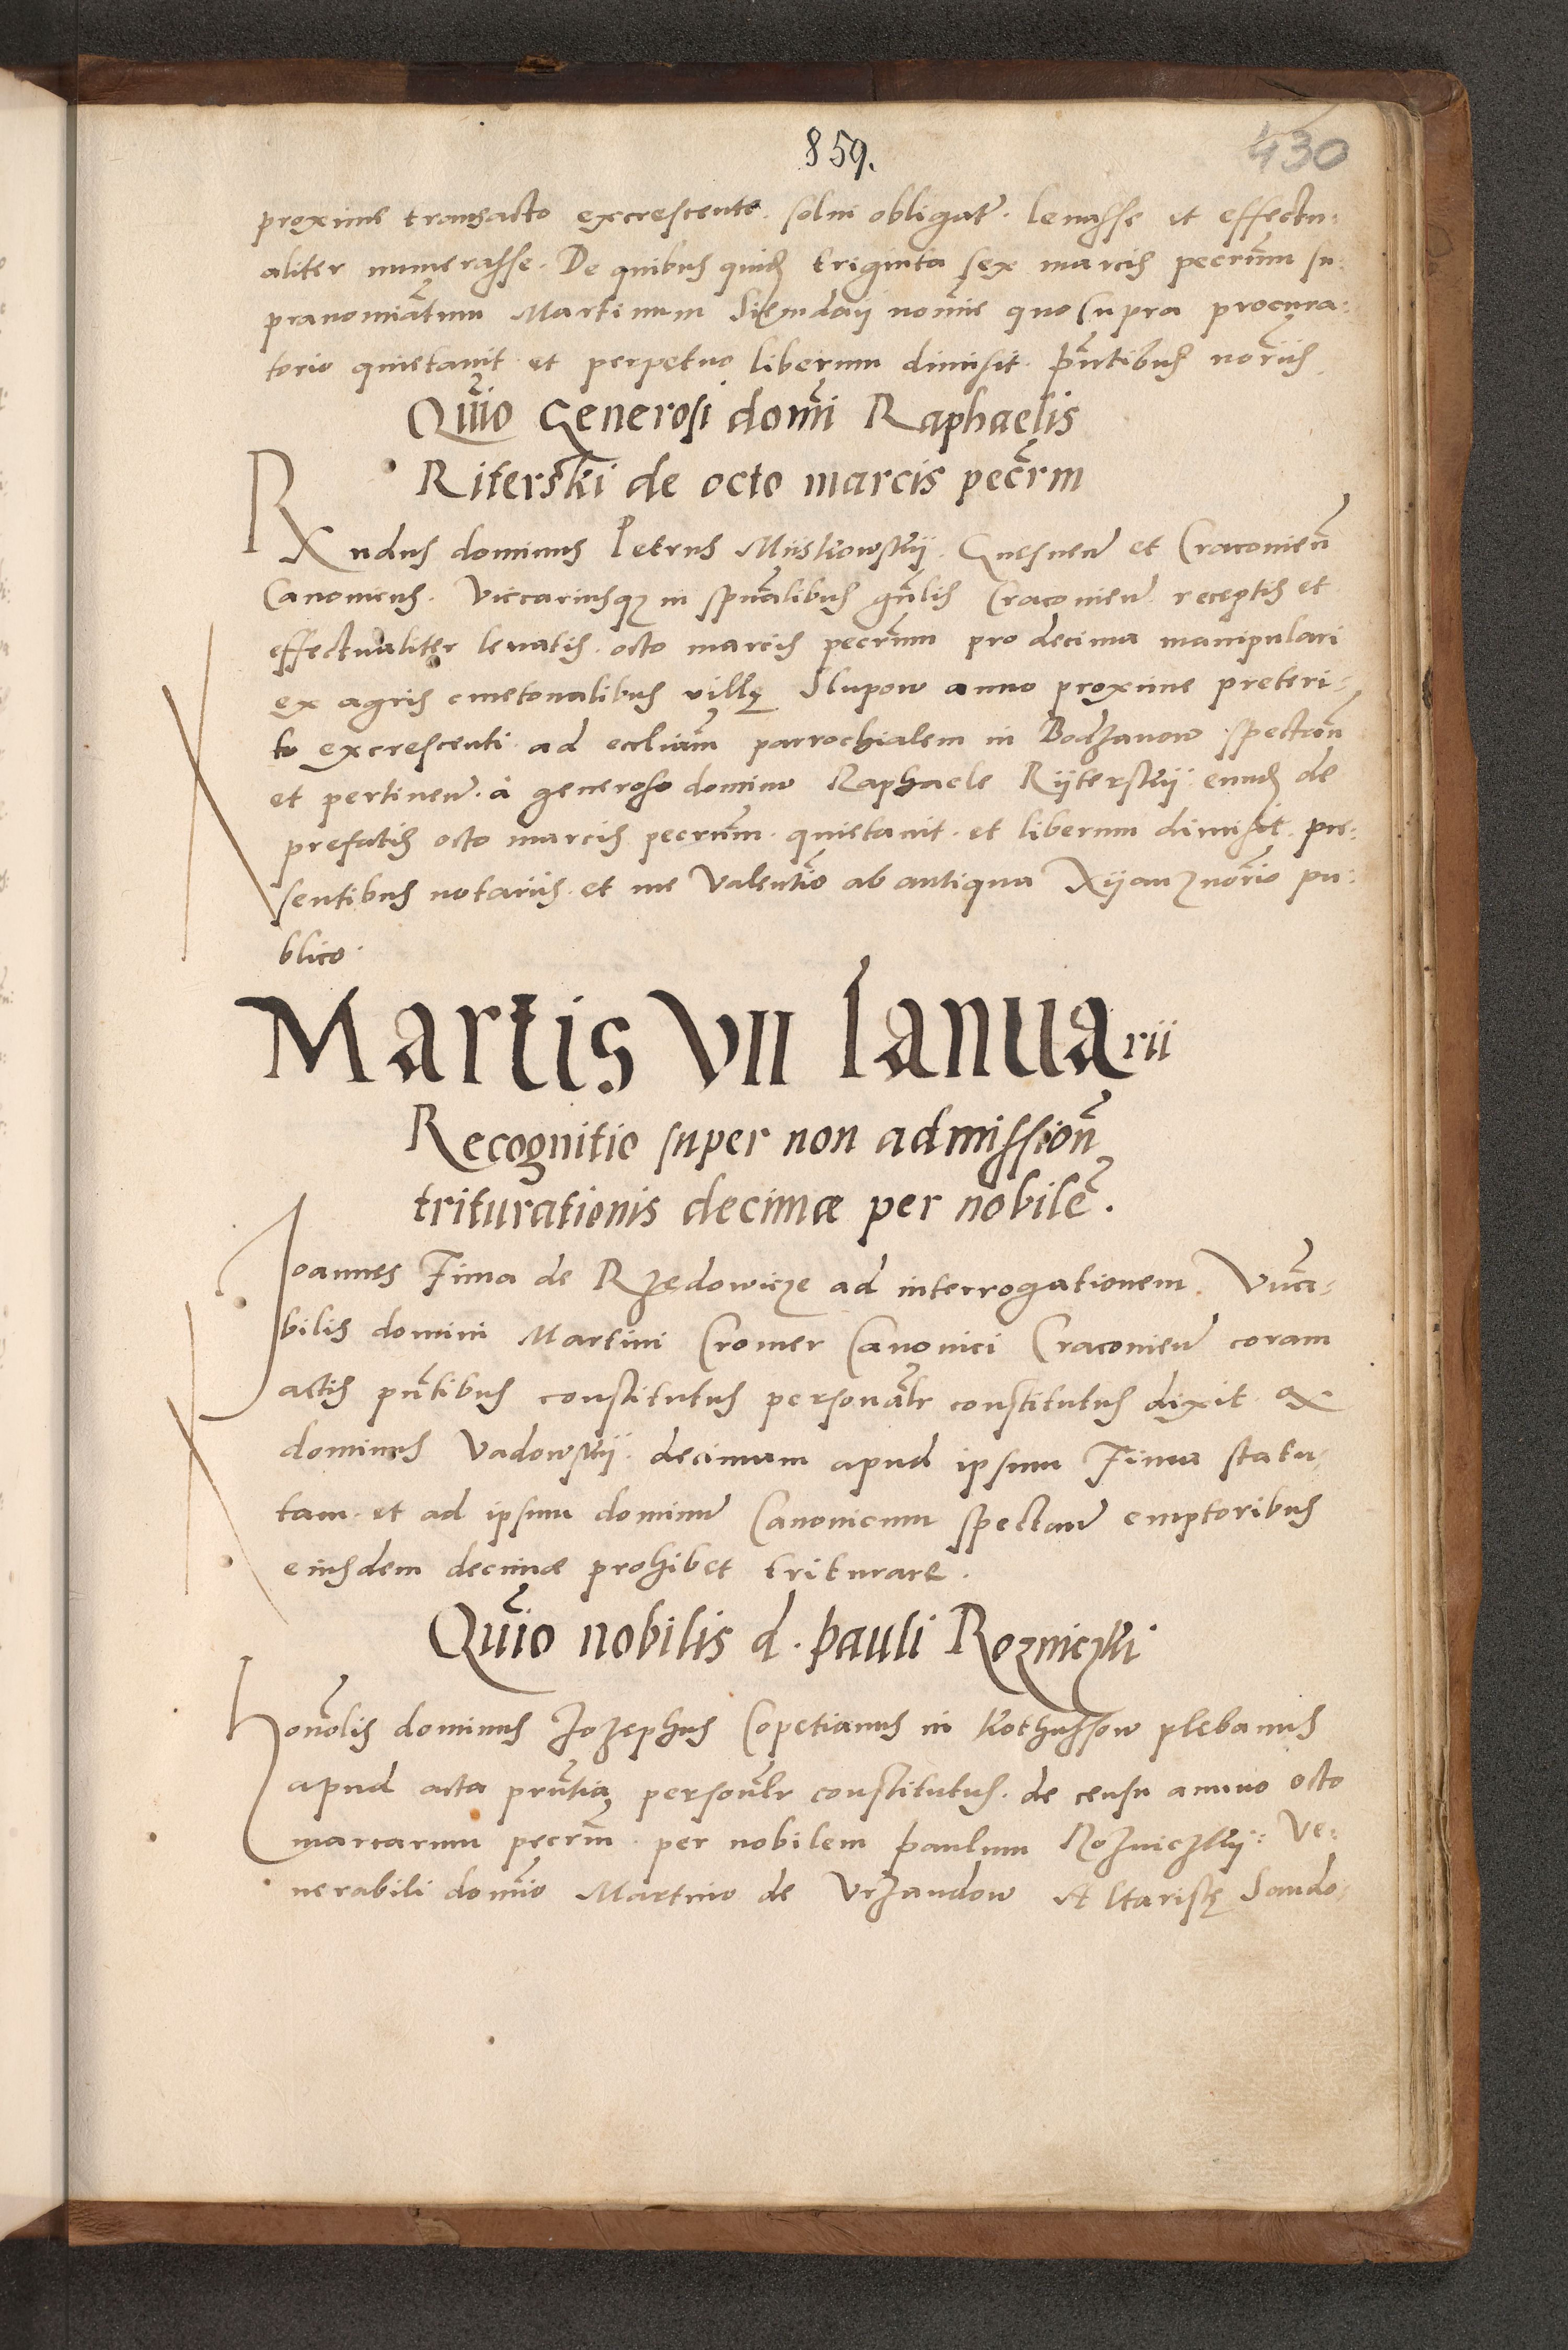 859.
430
proxime transacto excrescente. solui obligat̃. leuasse et effectu:
aliter numerasse. De quibus quidẽ triginta sex marcis pecũm su:
pranomiãtum Martinum Siemdaij nomĩe quo supra procura:
torio quietauit et perpetuo liberum dimisit. p̃ntibus nor̃iis
Quĩo Generosi domĩ Raphaelis
Riterski de octo marcis pecr̃m
Rndus dominus Petrus Miiskowskij. Gnesneñ et Cracovieñ
Canonicus. Viccariusq; in spũalibus gñlis Cracovieñ receptis et
effectualiter leuatis. octo marcis pecrũm pro decima manipulari
ex agris cmetonalibus villę Slupow anno proxime preteri-
to excrescenti ad ecclĩam parrochialem in Bodzanow spectañ
et pertineñ. à generoso domino Raphaele Rijterskij eundẽ de
prefatis octo marcis pecrũm. quietauit. et liberum dimisit. pre:
sentibus notariis. et me Valentĩo ab antiqua Xijanz nor̃io pu:
blico.
Martis VII Ianuarii
Recognitio super non admissioñ
triturationis decimæ per nobilẽ.
Joannes Fima de Rzędowicze ad interrogationem Vñea-
bilis domini Martini Cromer Canonici Cracovieñ coram
actis p̃ntibus constitutus personalr̃ constitutus dixit. q̃
dominus Vadowskij. decimam apud ipsum Fima statu-
tam. et ad ipsum dominũ Canonicum spectañ emptoribus
eiusdem decimæ prohibet triturare.
Quĩo nobilis d. pauli Rozniczki
honõlis dominus Jozephus Copetianus in Kothussow plebanus
apud acta prñtia personalr̃ constitutus. de censu annuo octo
marcarum pecrũm. per nobilem paulum Rozniczkij: Ve:
nerabili domĩo Martino de Vrzandow Altaristę Sando-